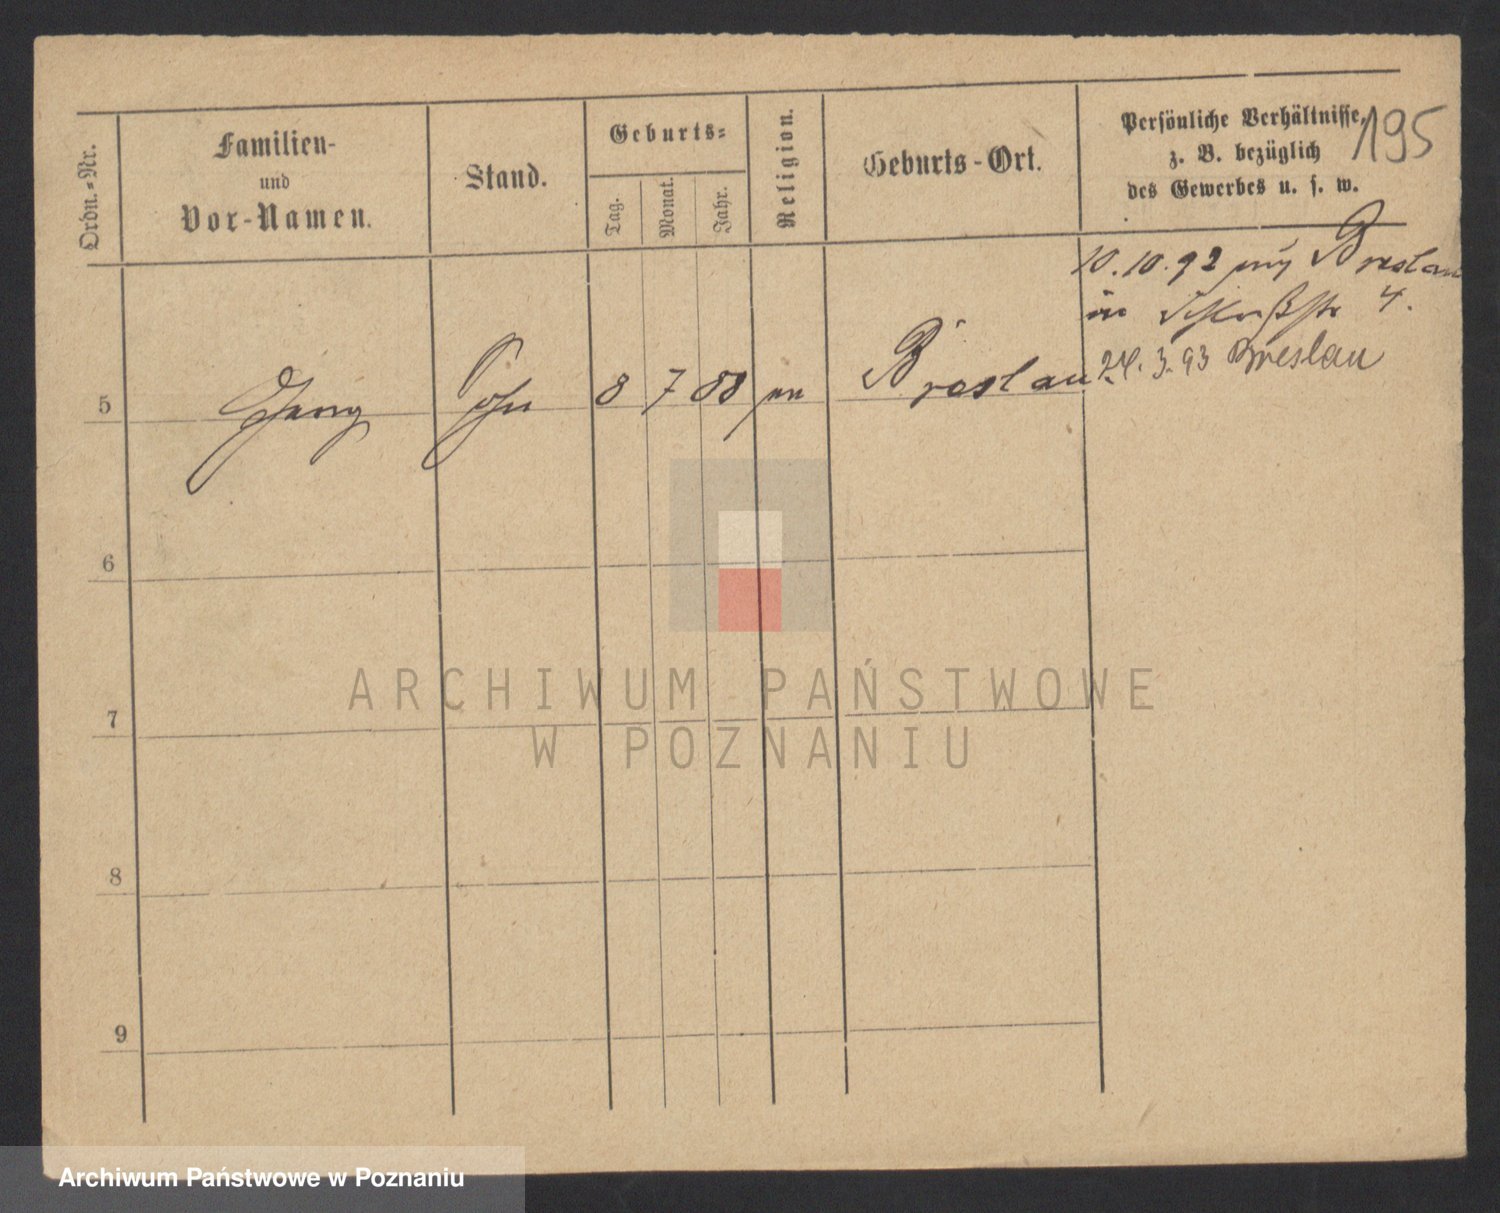 195
Ordn.-Nr.
Familien-
und
Vor-Namen.
Stand.
Geburts-
Tag.
Monat.
Jahr.
Religion.
Geburts-Ort.
Persönliche Verhältnisse,
z. B. bezüglich
des Gewerbes u. s. w.
10.10.92 Breslau
in 4.
24.3.93 Breslau
5 Georg Sohn 8 7 88 Breslau
6
7
8
9
ARCHIWUM PAŃSTWOWE
W POZNANIU
Archiwum Państwowe w Poznaniu